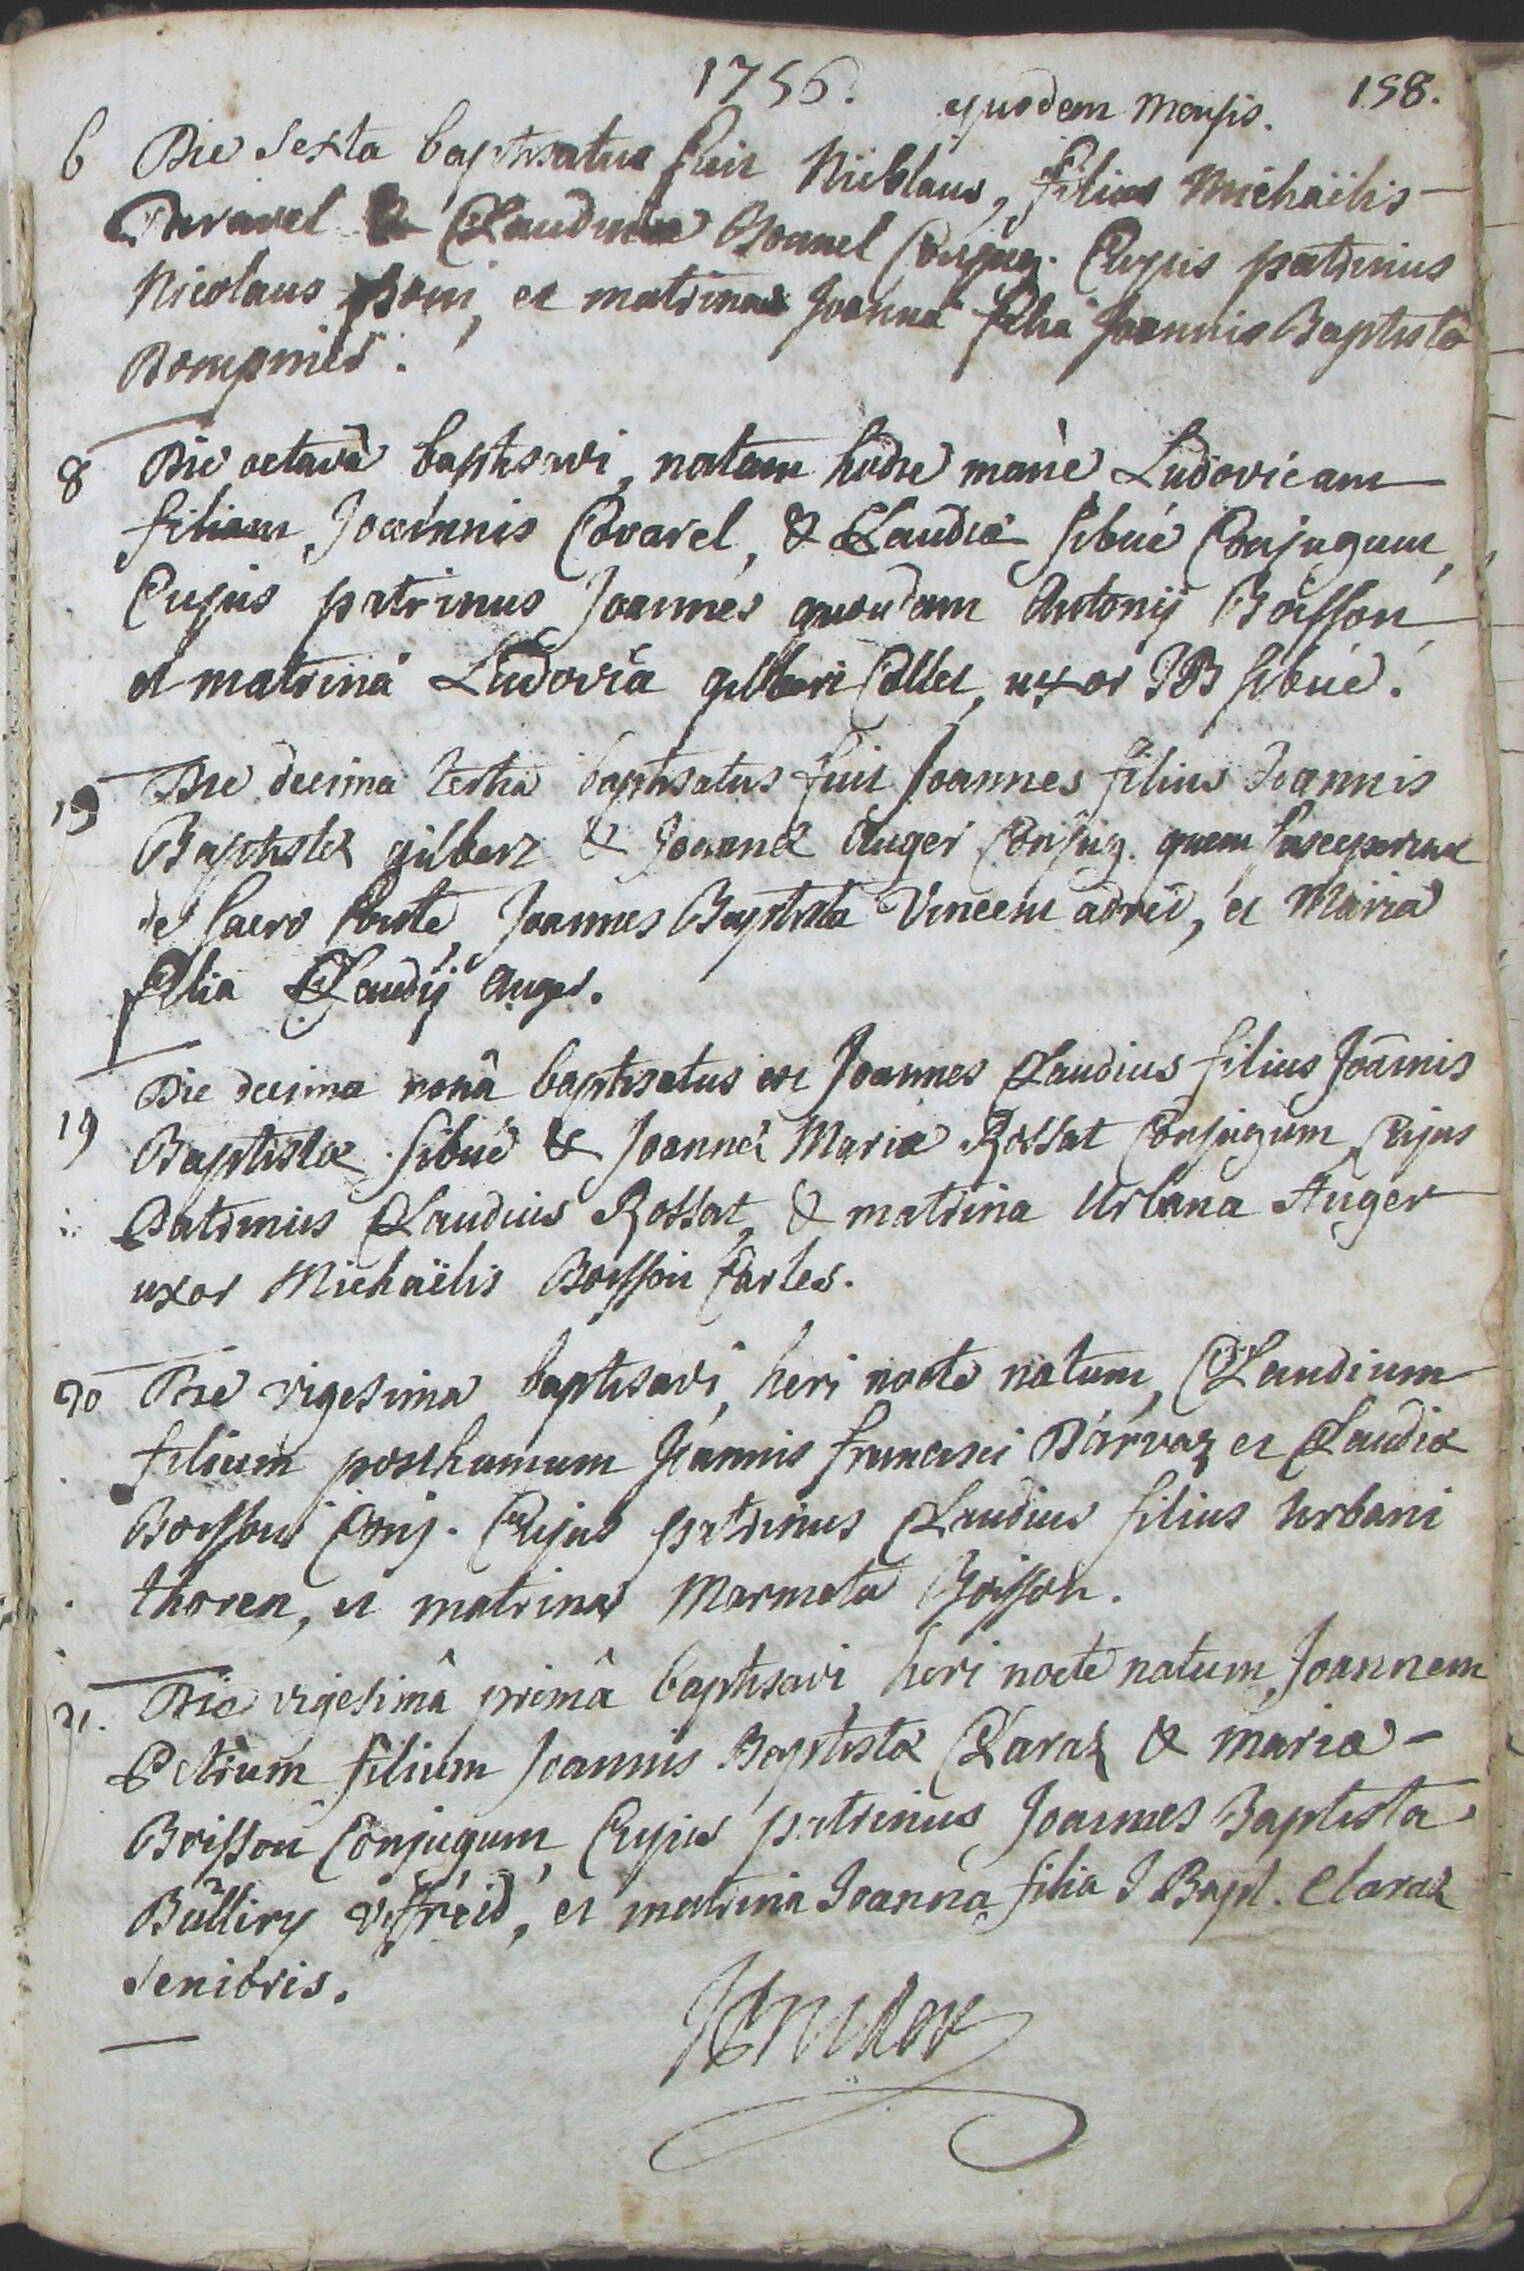 1756. ejusdem Mensis. 158.
6 Die Sexta baptisatus fuit Nicolaus, filius Michaëlis
& Claudinæ Conjug. Cujus patrinus
Nicolaus et matrina Joanna filia Joannis Baptistæ

8 Die octavâ baptisavi, natam hodie mane Ludovicam
filiam Joannis Covarel, & Claudiæ Sibué Conjugum,
Cujus patrinus Joannes quondam Antonij Boisson
et matrina Ludovica gilbert Collet, uxor JB Sibué.
13 Die decima tertia baptisatus fuit Joannes filius Joannis
Baptistæ gilbert & Joannæ Auger Conjug. quem susceperunt
de sacro fonte, Joannes Baptista Vincent et Maria
filia Claudij Auger.
19 Die decima nonâ baptisatus est Joannes Claudius filius Joannis
Baptistæ Sibué & Joannæ Mariæ Rossat Conjugum, Cujus
Patrinus Claudius Rossat, & matrina Urbana Auger
uxor Michaëlis Boisson Carles.
20 Die vigesima baptisavi, heri nocte natum, Claudium
filium posthumum Joannis francisci Darvaz et Claudiæ
Boisson Conj. Cujus patrinus Claudius filius Urbani
thoren, et matrina Marmeta Boisson.
21. Die vigesimâ primâ baptisavi heri nocte natum, Joannem
Petrum filium Joannis Baptistæ Claraz & mariæ
Boisson Conjugum, Cujus patrinus Joannes Baptista
Bulliry et matrina Joanna filia J Bapt. Claraz
senioris.